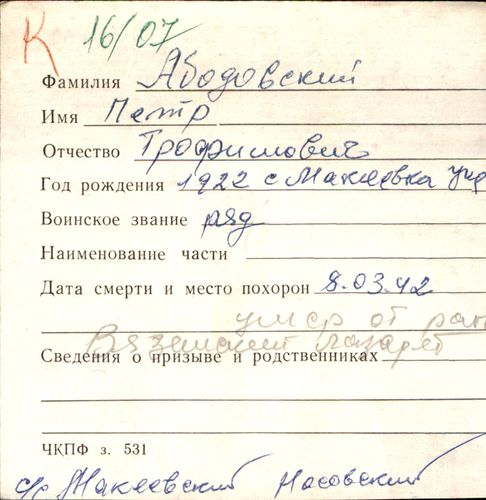 К 16/07
Фамилия Абодовский
Имя Петр
Отчество Трофимович
Год рождения 1922 с Макеевка
Воинское звание ряд
Наименование части
Дата смерти и место похорон 8.03.42
умер от ран
Вяземский лазарет
Сведения о призыве и родственниках
ЧКПФ з. 531
с/с Макеевский Носовский